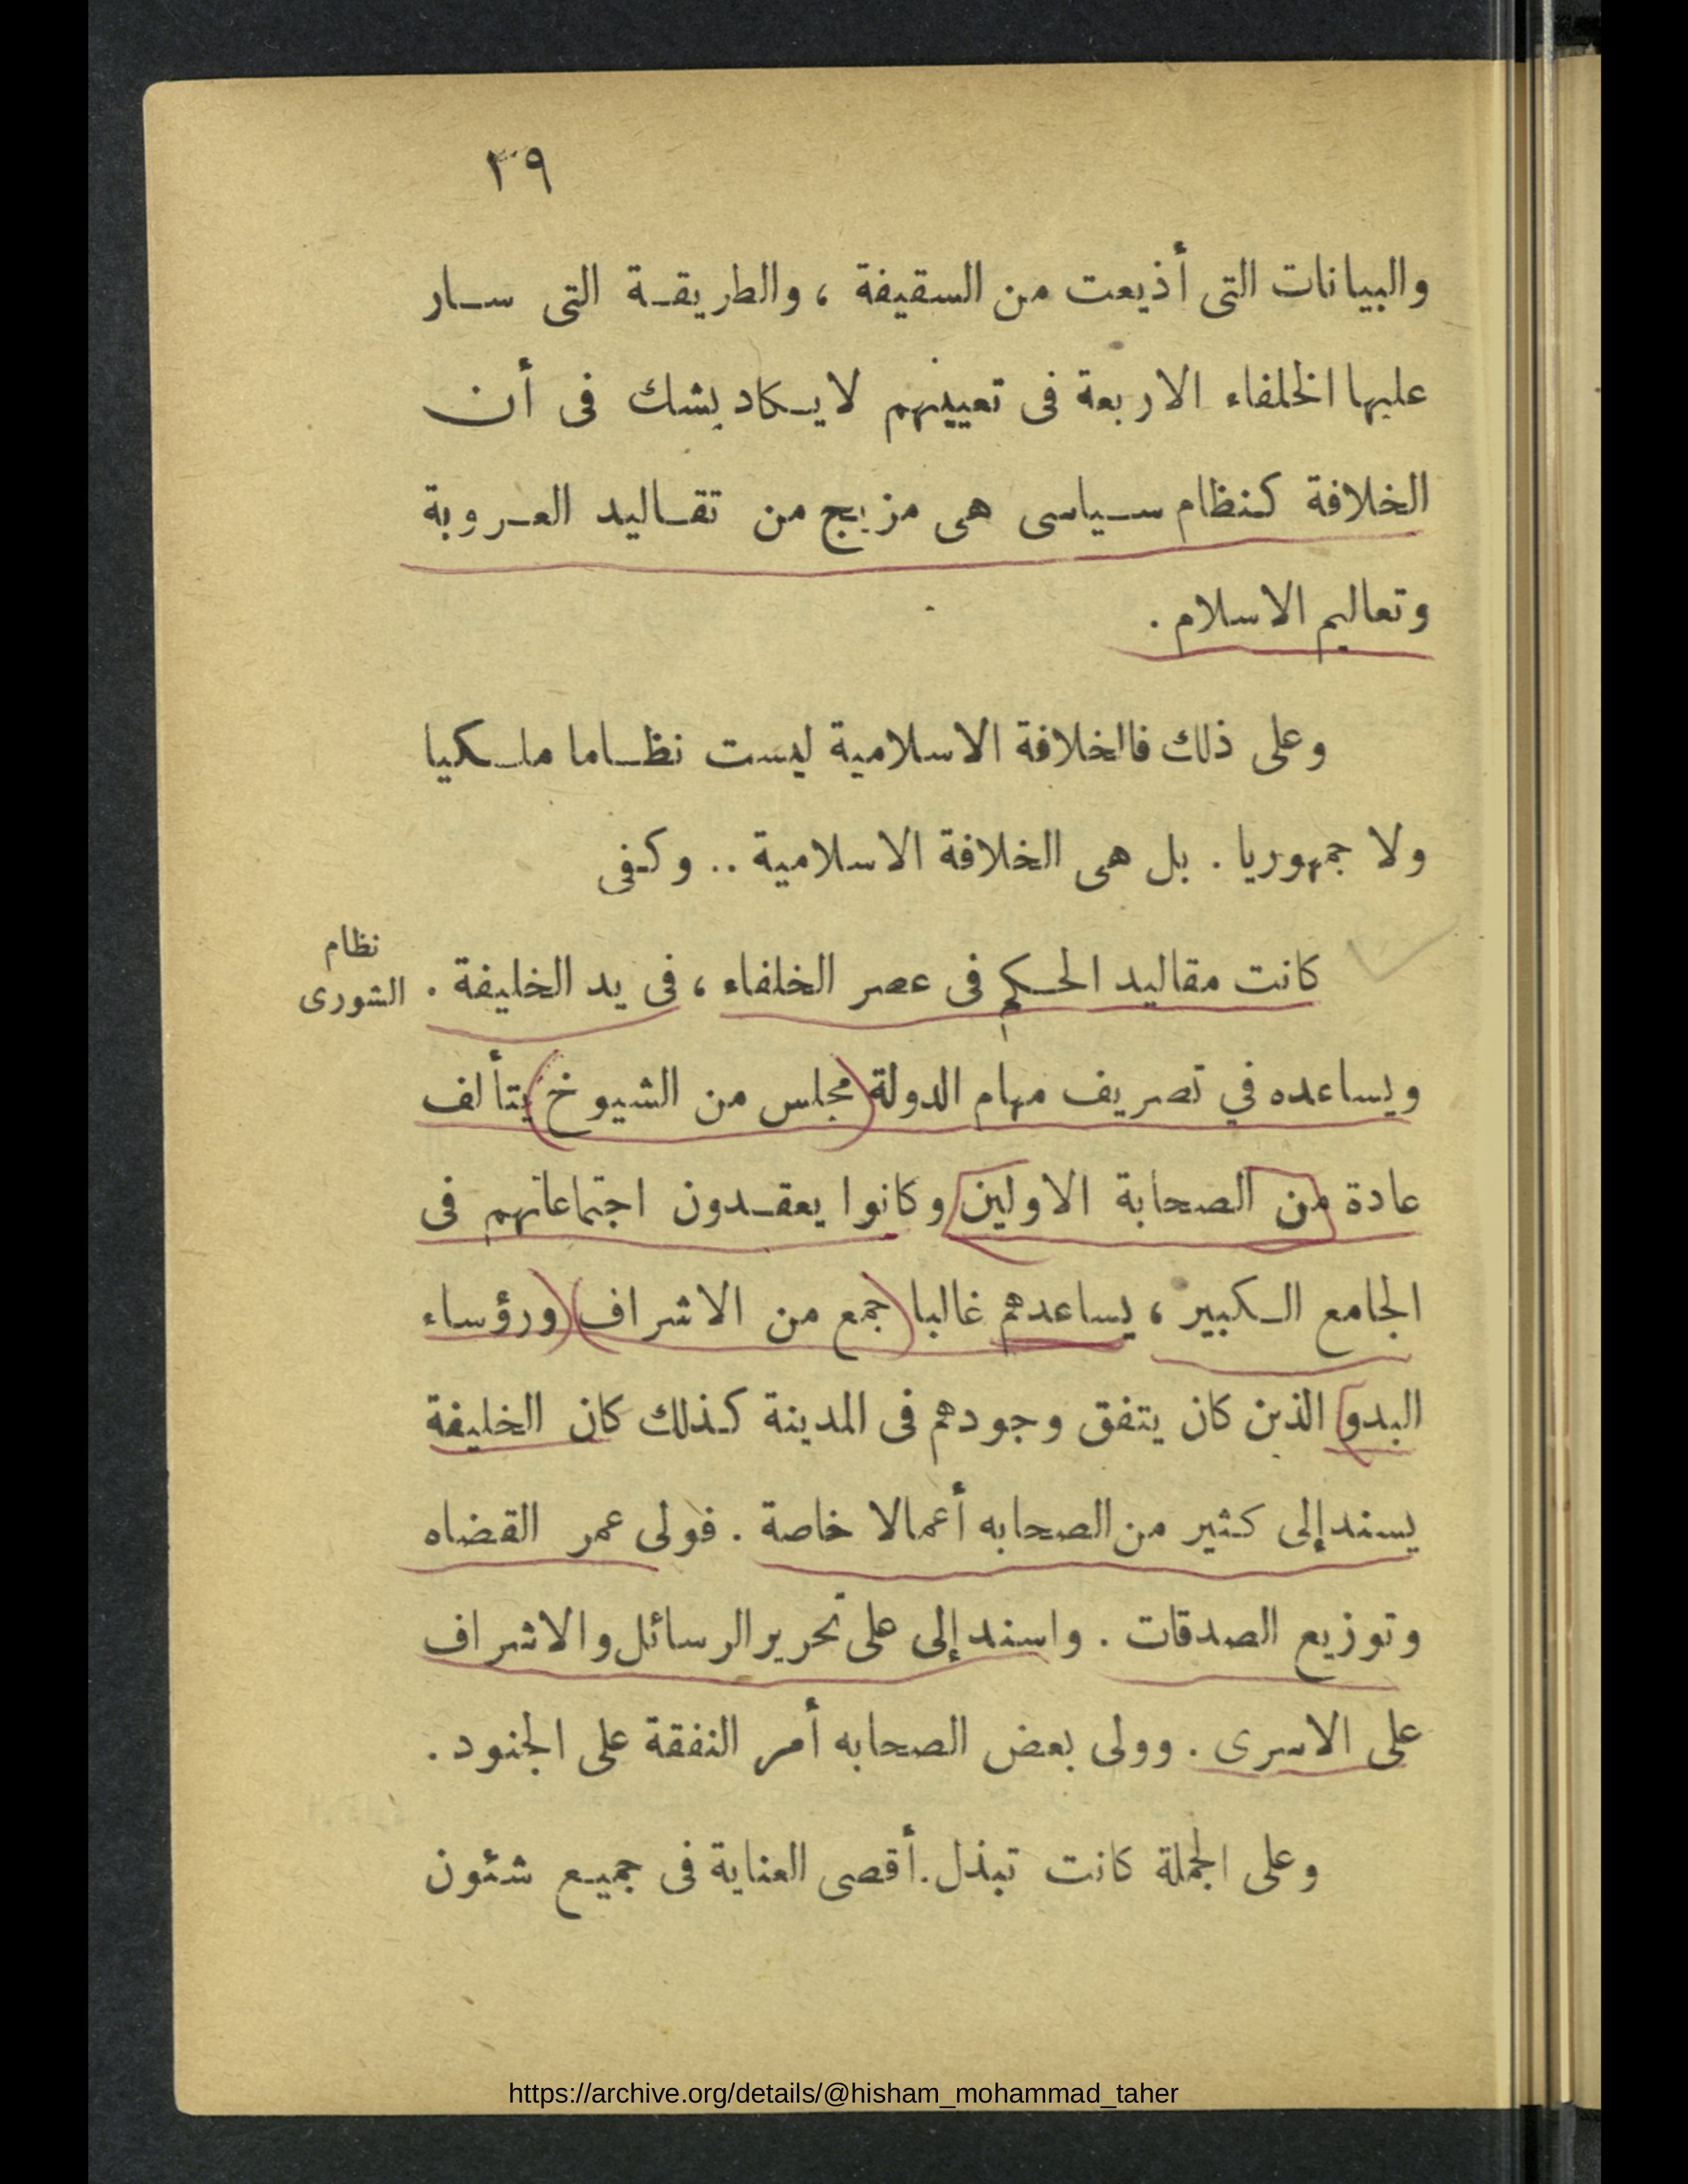 ٣٩
والبيانات التى أذيعت من السقيفة ، والطريقة التى سار
عليها الخلفاء الاربعة فى تعيينهم لا يكاد يشك فى أن
الخلافة كنظام سياسى هى مزيج من تقاليد العروبة
وتعاليم الاسلام .
وعلى ذلك فاالخلافة الاسلامية ليست نظاما ملكيا
ولا جمهوريا . بل هى الخلافة الاسلامية .. وكفى
نظام
الشورى
كانت مقاليد الحكم فى عصر الخلفاء ، فى يد الخليفة .
ويساعده في تصريف مهام الدولة (مجلس من الشيوخ) يتألف
عادة من الصحابة الاولين وكانوا يعقدون اجتماعاتهم فى
الجامع الكبير ، يساعدهم غالبا (جمع من الاشراف) (ورؤساء
البدو) الذين كان يتفق وجودهم فى المدينة كذلك كان الخليفة
يسند إلى كثير من الصحابه أعمالا خاصة . فولى عمر القضاه
وتوزيع الصدقات . واسند إلى على تحرير الرسائل والاشراف
على الاسرى . وولى بعض الصحابه أمر النفقة على الجنود .
وعلى الجملة كانت تبذل .أقصى العناية فى جميع شئون
https://archive.org/details/@hisham_mohammad_taher